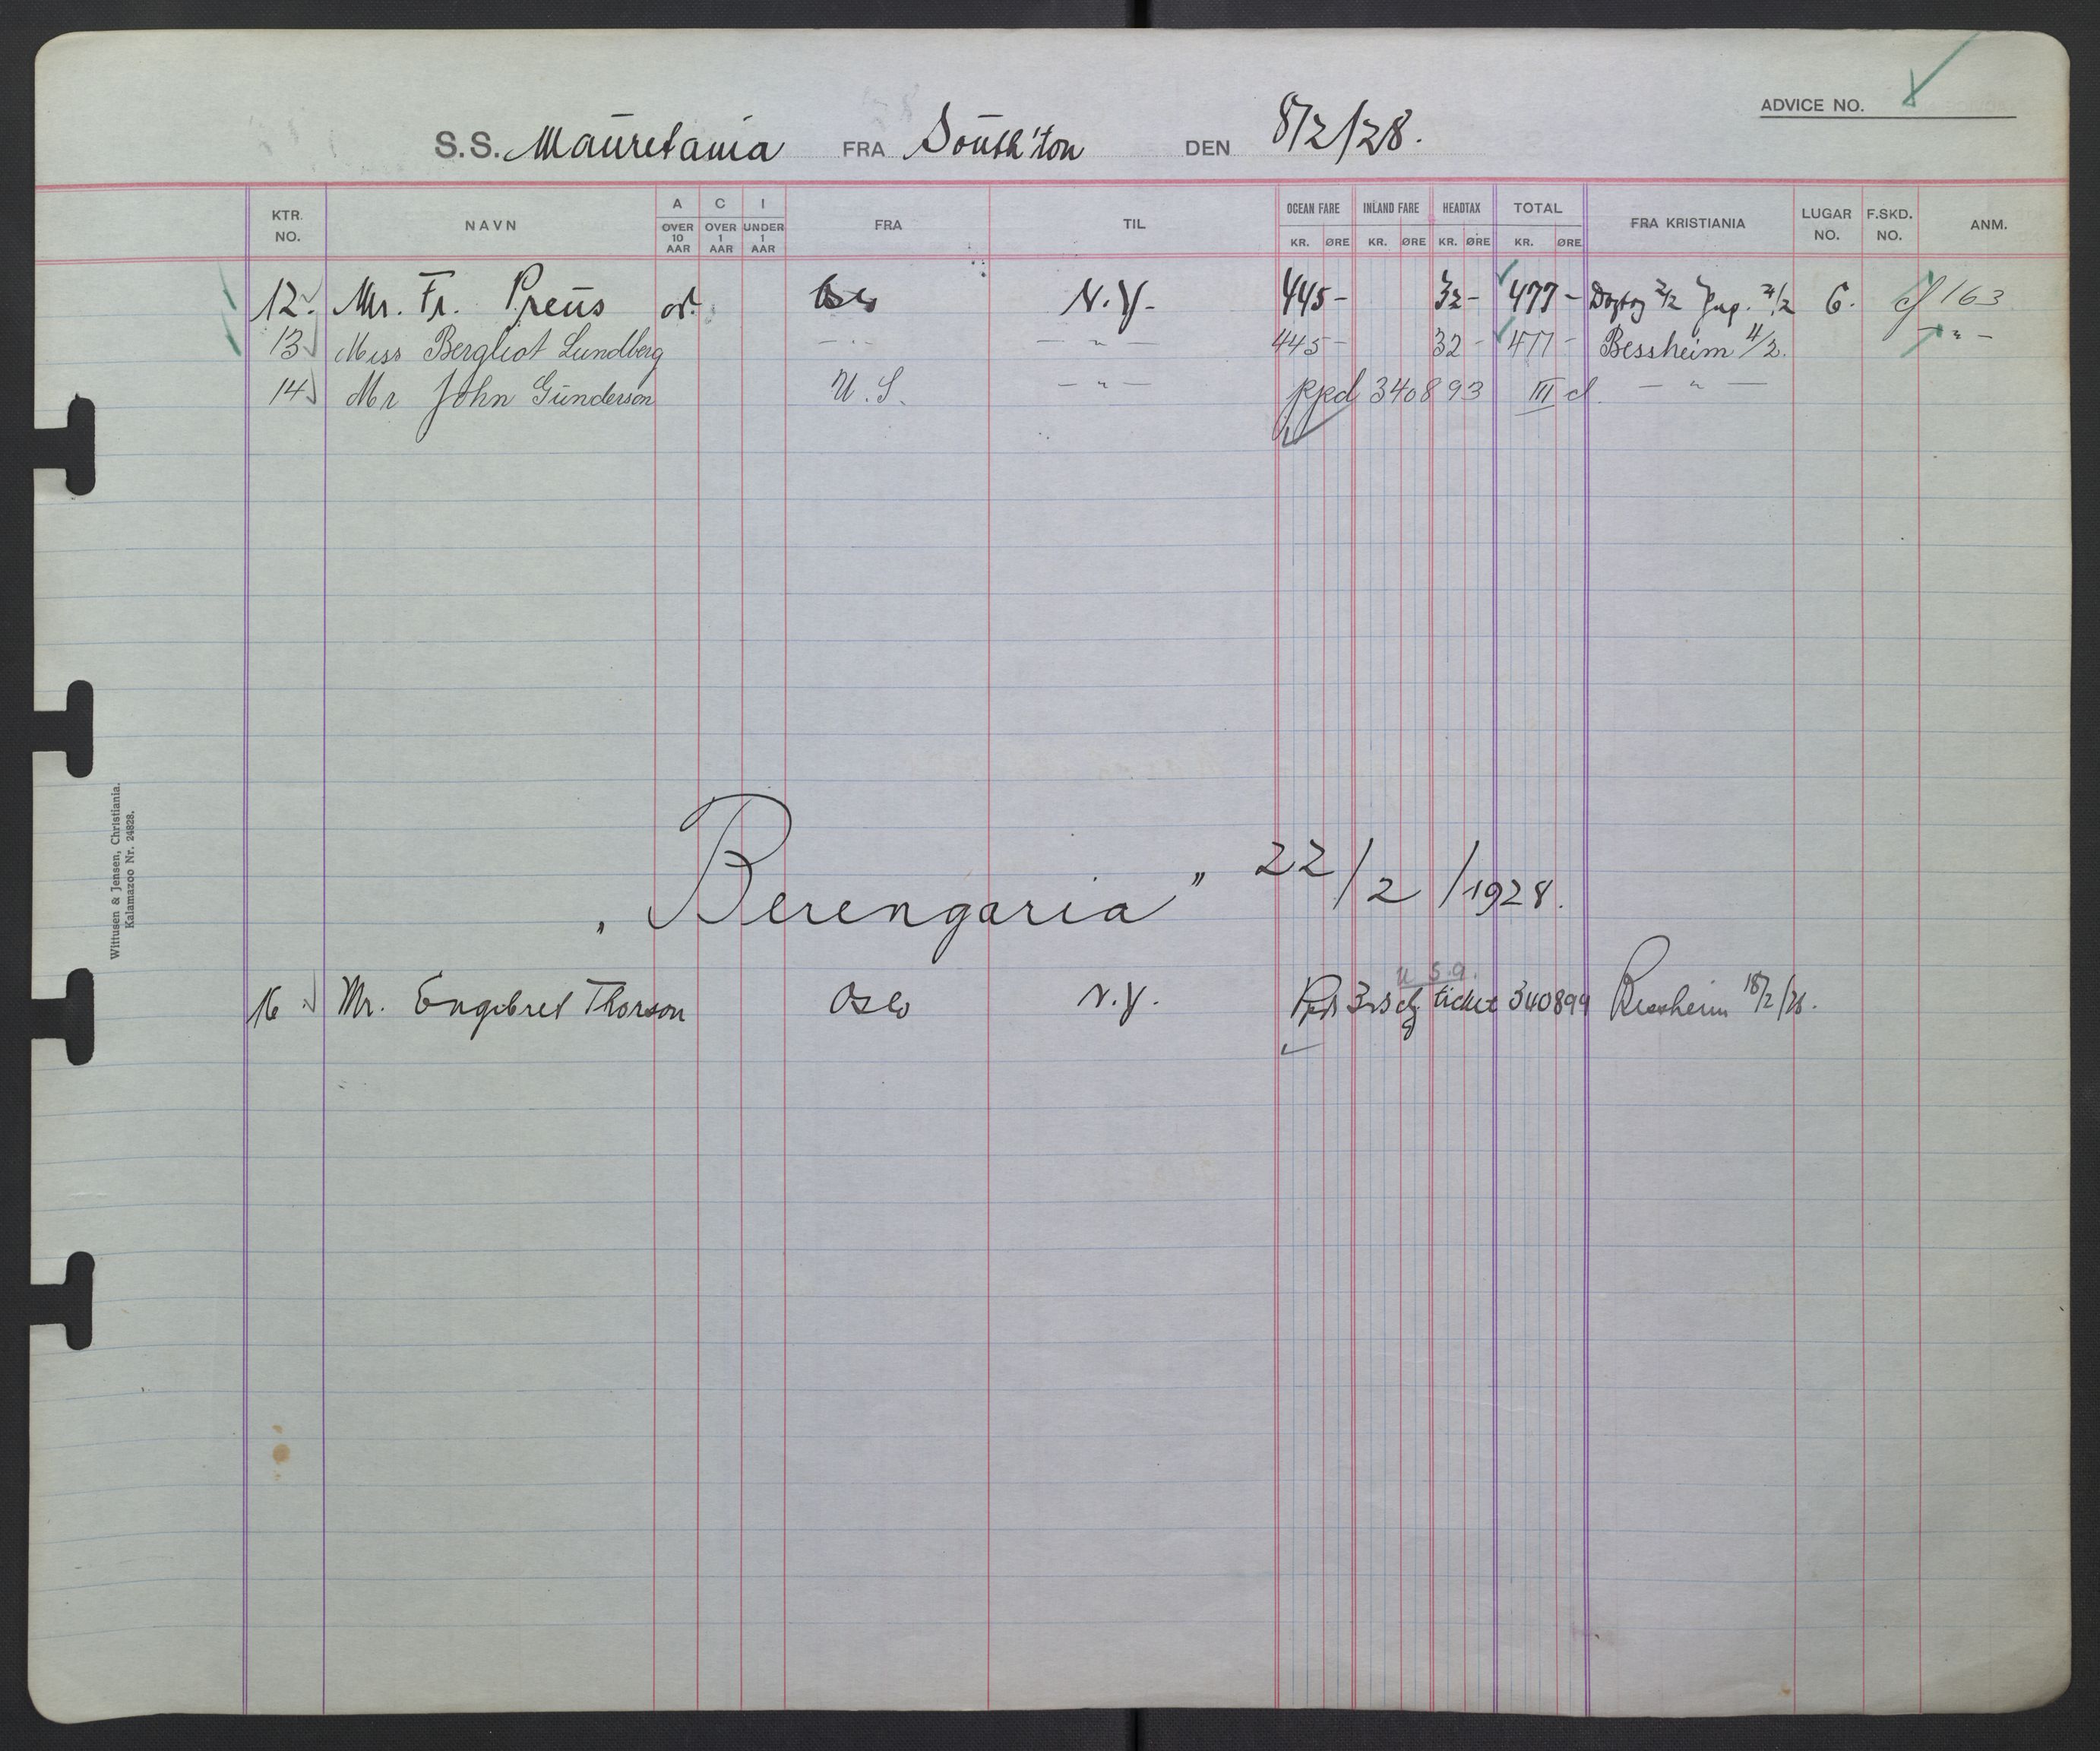 ADVICE NO.
S.S. Mauretania FRA South'ton DEN 8/2/28.
KTR. NO. NAVN A OVER 10 AAR C OVER 1 AAR I UNDER 1 AAR FRA TIL OCEAN FARE KR. ØRE INLAND FARE KR. ØRE HEADTAX KR. ØRE TOTAL KR. ØRE FRA KRISTIANIA LUGAR NO. F.SKD. NO. ANM.
12. Mr. Fr. Preus Oslo N.Y. 445- 32- 477- 2/2 6. 163
13 Miss Bergliot Lundberg - " - - " - 445- 32- 477- Bessheim 4/2. - " -
14 Mr John Gunderson U.S. - " - ppd 340893 III cl. - " -
„Berengaria" 22/2/1928.
U.S.A.
16 Mr. Engebret Thorson Oslo N.Y. Ppd 3rd ticket 340899 Bessheim 18/2/28.
Wittusen & Jensen, Christiania.
Kalamazoo Nr. 24828.